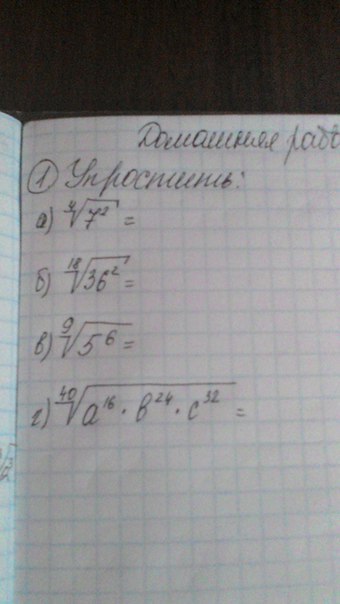 Домашняя рабо
① Упростить:
а) ⁴√7² =
б) ¹⁸√36² =
в) ⁹√5⁶ =
г) ⁴⁰√a¹⁶ · b²⁴ · c³² =